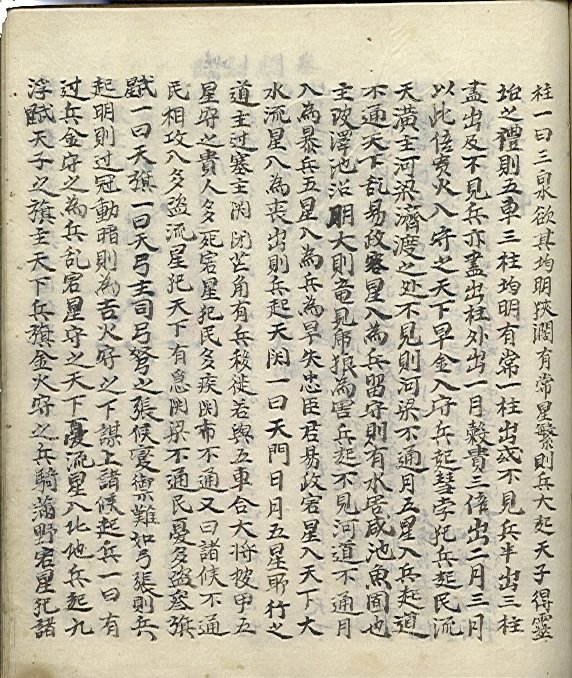 柱一曰三泉欲其均明狹濶有常星繁則兵大起天子得靈
䑓之禮則五車三柱均明有常一柱出或不見兵半出三柱
盡出及不見兵亦盡出柱外出一月糓貴三倍出二月三月
以此倍貴火入守之天下旱金入守兵起彗孛犯兵起民流
天潢主河梁濟渡之处不見則河梁不通月五星入兵起道
不通天下乱易政客星入為兵留守則有水居咸池魚囿也
主陂澤池沼明大則竜見虎狼為害兵起不見河道不通月
入為暴兵五星入為兵為旱失忠臣君易政客星入天下大
水流星入為丧出則兵起天関一曰天門日月五星所行之
道主过塞主関閉芒角有兵移徙若與五車合大将披甲五
星守之貴人多死客星犯民多疾関市不通又曰諸候不通
民相攻入多盗流星犯天下有急関梁不通民憂多盗参旗
一曰天旗一曰天弓主司弓弩之張候憂禦難如弓張則兵
起明則过冦動暗則為吉火守之下謀上諸候起兵一曰有
过兵金守之為兵乱客星守之天下憂流星入北地兵起九
斿天子之旗主天下兵旗金火守之兵騎滿野客星犯諸